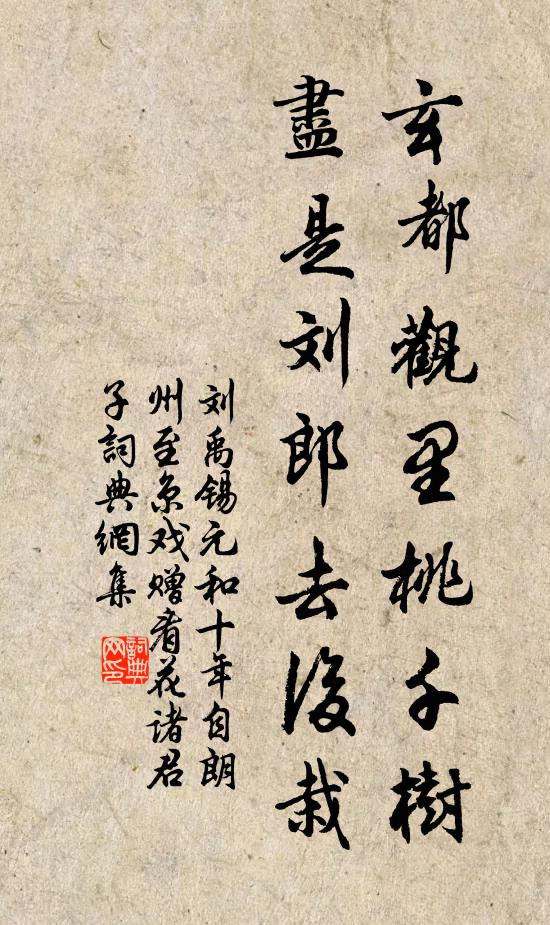 玄都觀里桃千樹
盡是刘郎去後栽
刘禹锡元和十年自朗
州至京戏赠看花诸君
子詞典網集
詞典网印